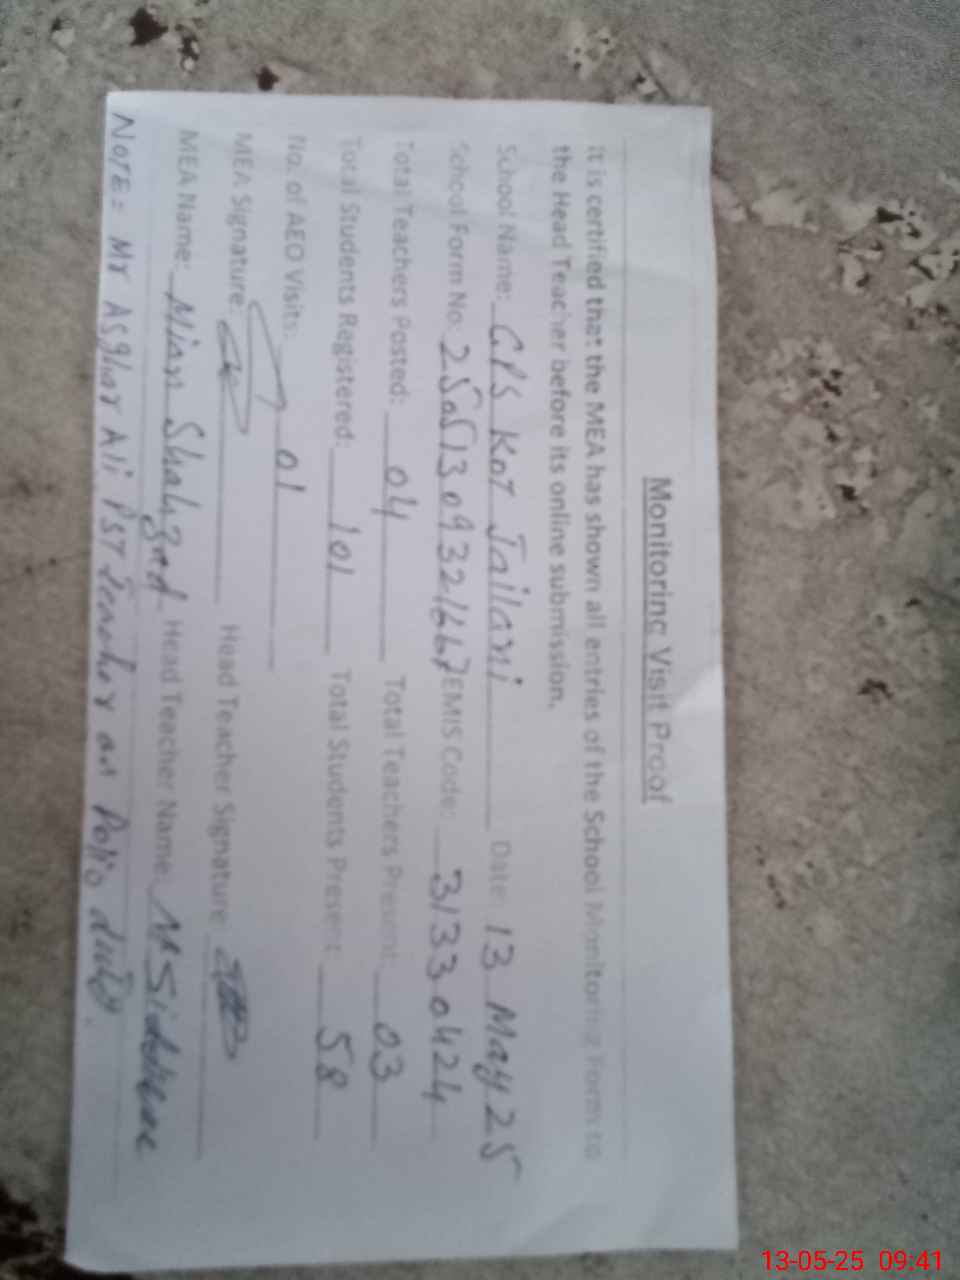 Monitoring Visit Proof
It is certified that the MEA has shown all entries of the School Monitoring Form to
the Head Teacher before its online submission.
School Name: GPS Kot Jailani Date: 13 May 25
School Form No. 2505130932166 EMIS Code: 31330424
Total Teachers Posted: 04 Total Teachers Present: 03
Total Students Registered: 101 Total Students Present: 58
No. of AEO Visits: 01
MEA Signature: Head Teacher Signature:
MEA Name: Mian Shahzad Head Teacher Name:
NOTE= Mr Asghar Ali PST Teacher on Polio duty.
13-05-25 09:41